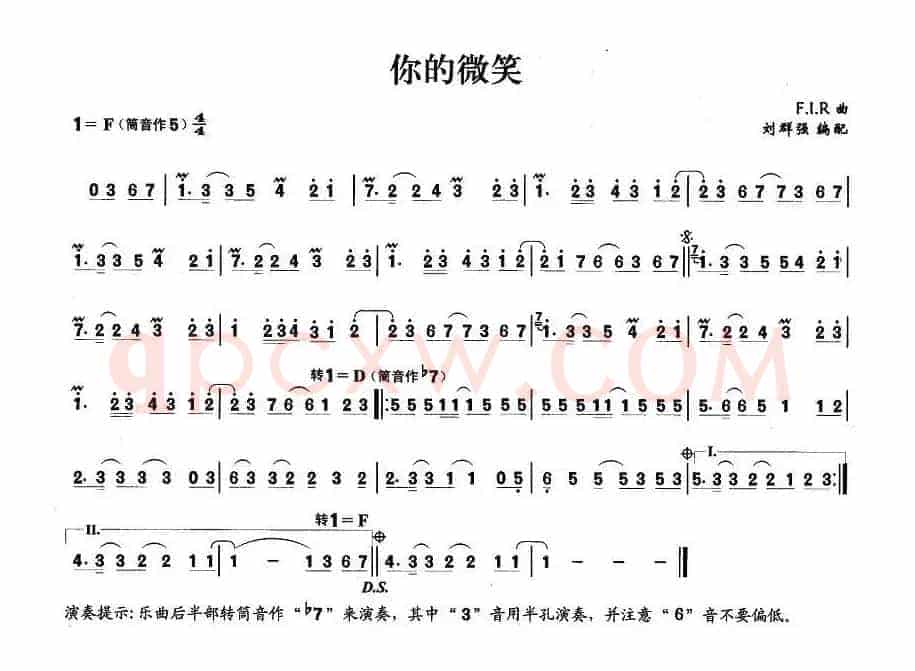 你的微笑
F.I.R 曲
1= F（筒音作5）4/4
刘群强 编配
0 3 6 7 | 1. 3 3 5 4 2 1 | 7. 2 2 4 3 2 3 | 1. 2 3 4 3 1 2 | 2 3 6 7 7 3 6 7 |
1. 3 3 5 4 2 1 | 7. 2 2 4 3 2 3 | 1. 2 3 4 3 1 2 | 2 1 7 6 6 3 6 7 || 7 1. 3 3 5 5 4 2 1 |
7. 2 2 4 3 2 3 | 1 2 3 4 3 1 2 | 2 3 6 7 7 3 6 7 | 7 1. 3 3 5 4 2 1 | 7. 2 2 4 3 2 3 |
转1= D（筒音作♭7）
1. 2 3 4 3 1 2 | 2 3 7 6 6 1 2 3 ||: 5 5 5 1 1 1 5 5 5 | 5 5 5 1 1 1 5 5 5 | 5. 6 6 5 1 1 2 |
I.
2. 3 3 3 3 0 3 | 6 3 3 2 2 3 2 | 2. 3 3 1 1 0 5 | 6 5 5 5 3 5 3 | 5. 3 3 2 2 1 2 3 :||
II.
转1= F
4. 3 3 2 2 1 1 | 1 − 1 3 6 7 || 4. 3 3 2 2 1 1 | 1 − − − ||
D.S.
演奏提示:乐曲后半部转筒音作“♭7”来演奏，其中“3”音用半孔演奏，并注意“6”音不要偏低。
qpcxw.COM